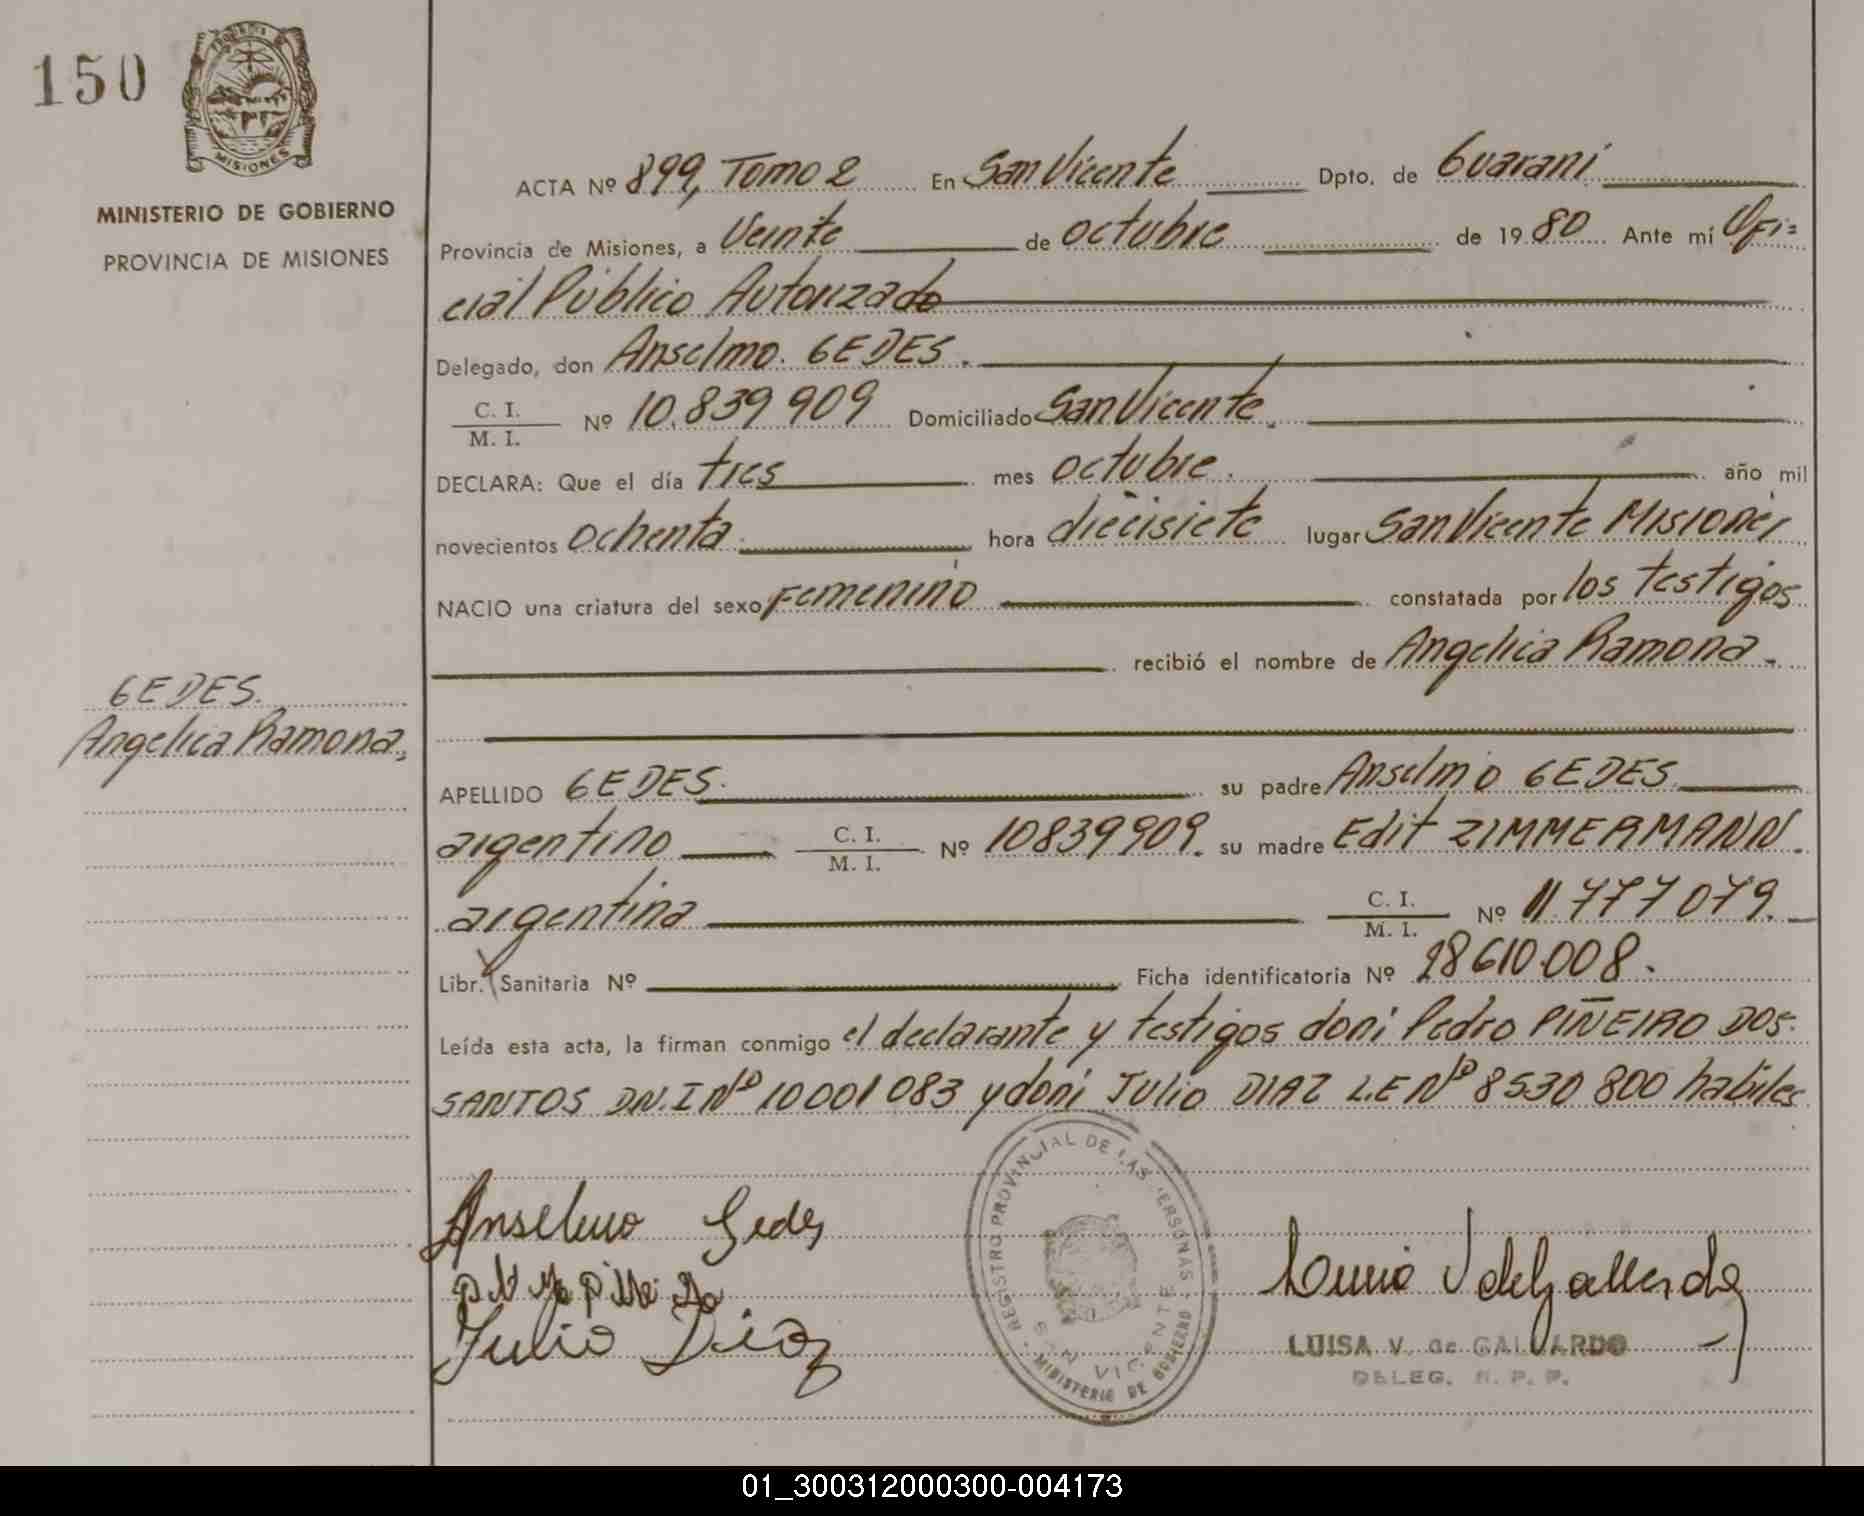 150
PROVINCIA
MISIONES
MINISTERIO DE GOBIERNO
PROVINCIA DE MISIONES
GEDES.
Angelica Ramona,
ACTA Nº 899, Tomo 2 En San Vicente Dpto. de Guarani
Provincia de Misiones, a Veinte de octubre de 1980 Ante mí Ofi=
cial Público Autorizado
Delegado, don Anselmo. GEDES.
C. I.
M. I. Nº 10.839 909 Domiciliado San Vicente.
DECLARA: Que el día tres mes octubre. año mil
novecientos ochenta. hora diecisiete lugar San Vicente Misiones
NACIO una criatura del sexo Femenino constatada por los testigos
recibió el nombre de Angelica Ramona.
APELLIDO GEDES. su padre Anselmo GEDES
argentino C. I.
M. I. Nº 10839909. su madre Edit ZIMMERMANN.
argentina C. I.
M. I. Nº 11.777 079.
Libr. Sanitaria Nº Ficha identificatoria Nº 28610.008.
Leída esta acta, la firman conmigo el declarante y testigos don: Pedro PIÑEIRO DOS.
SANTOS DN.I Nº 10001083 y don: Julio DIAZ L.E Nº 8530 800 habiles
Anselmo Gedes
Julio Diaz
REGISTRO PROVINCIAL DE LAS PERSONAS
SAN VICENTE
MINISTERIO DE GOBIERNO
LUISA V. de GALLARDO
DELEG. R. P. P.
01_300312000300-004173